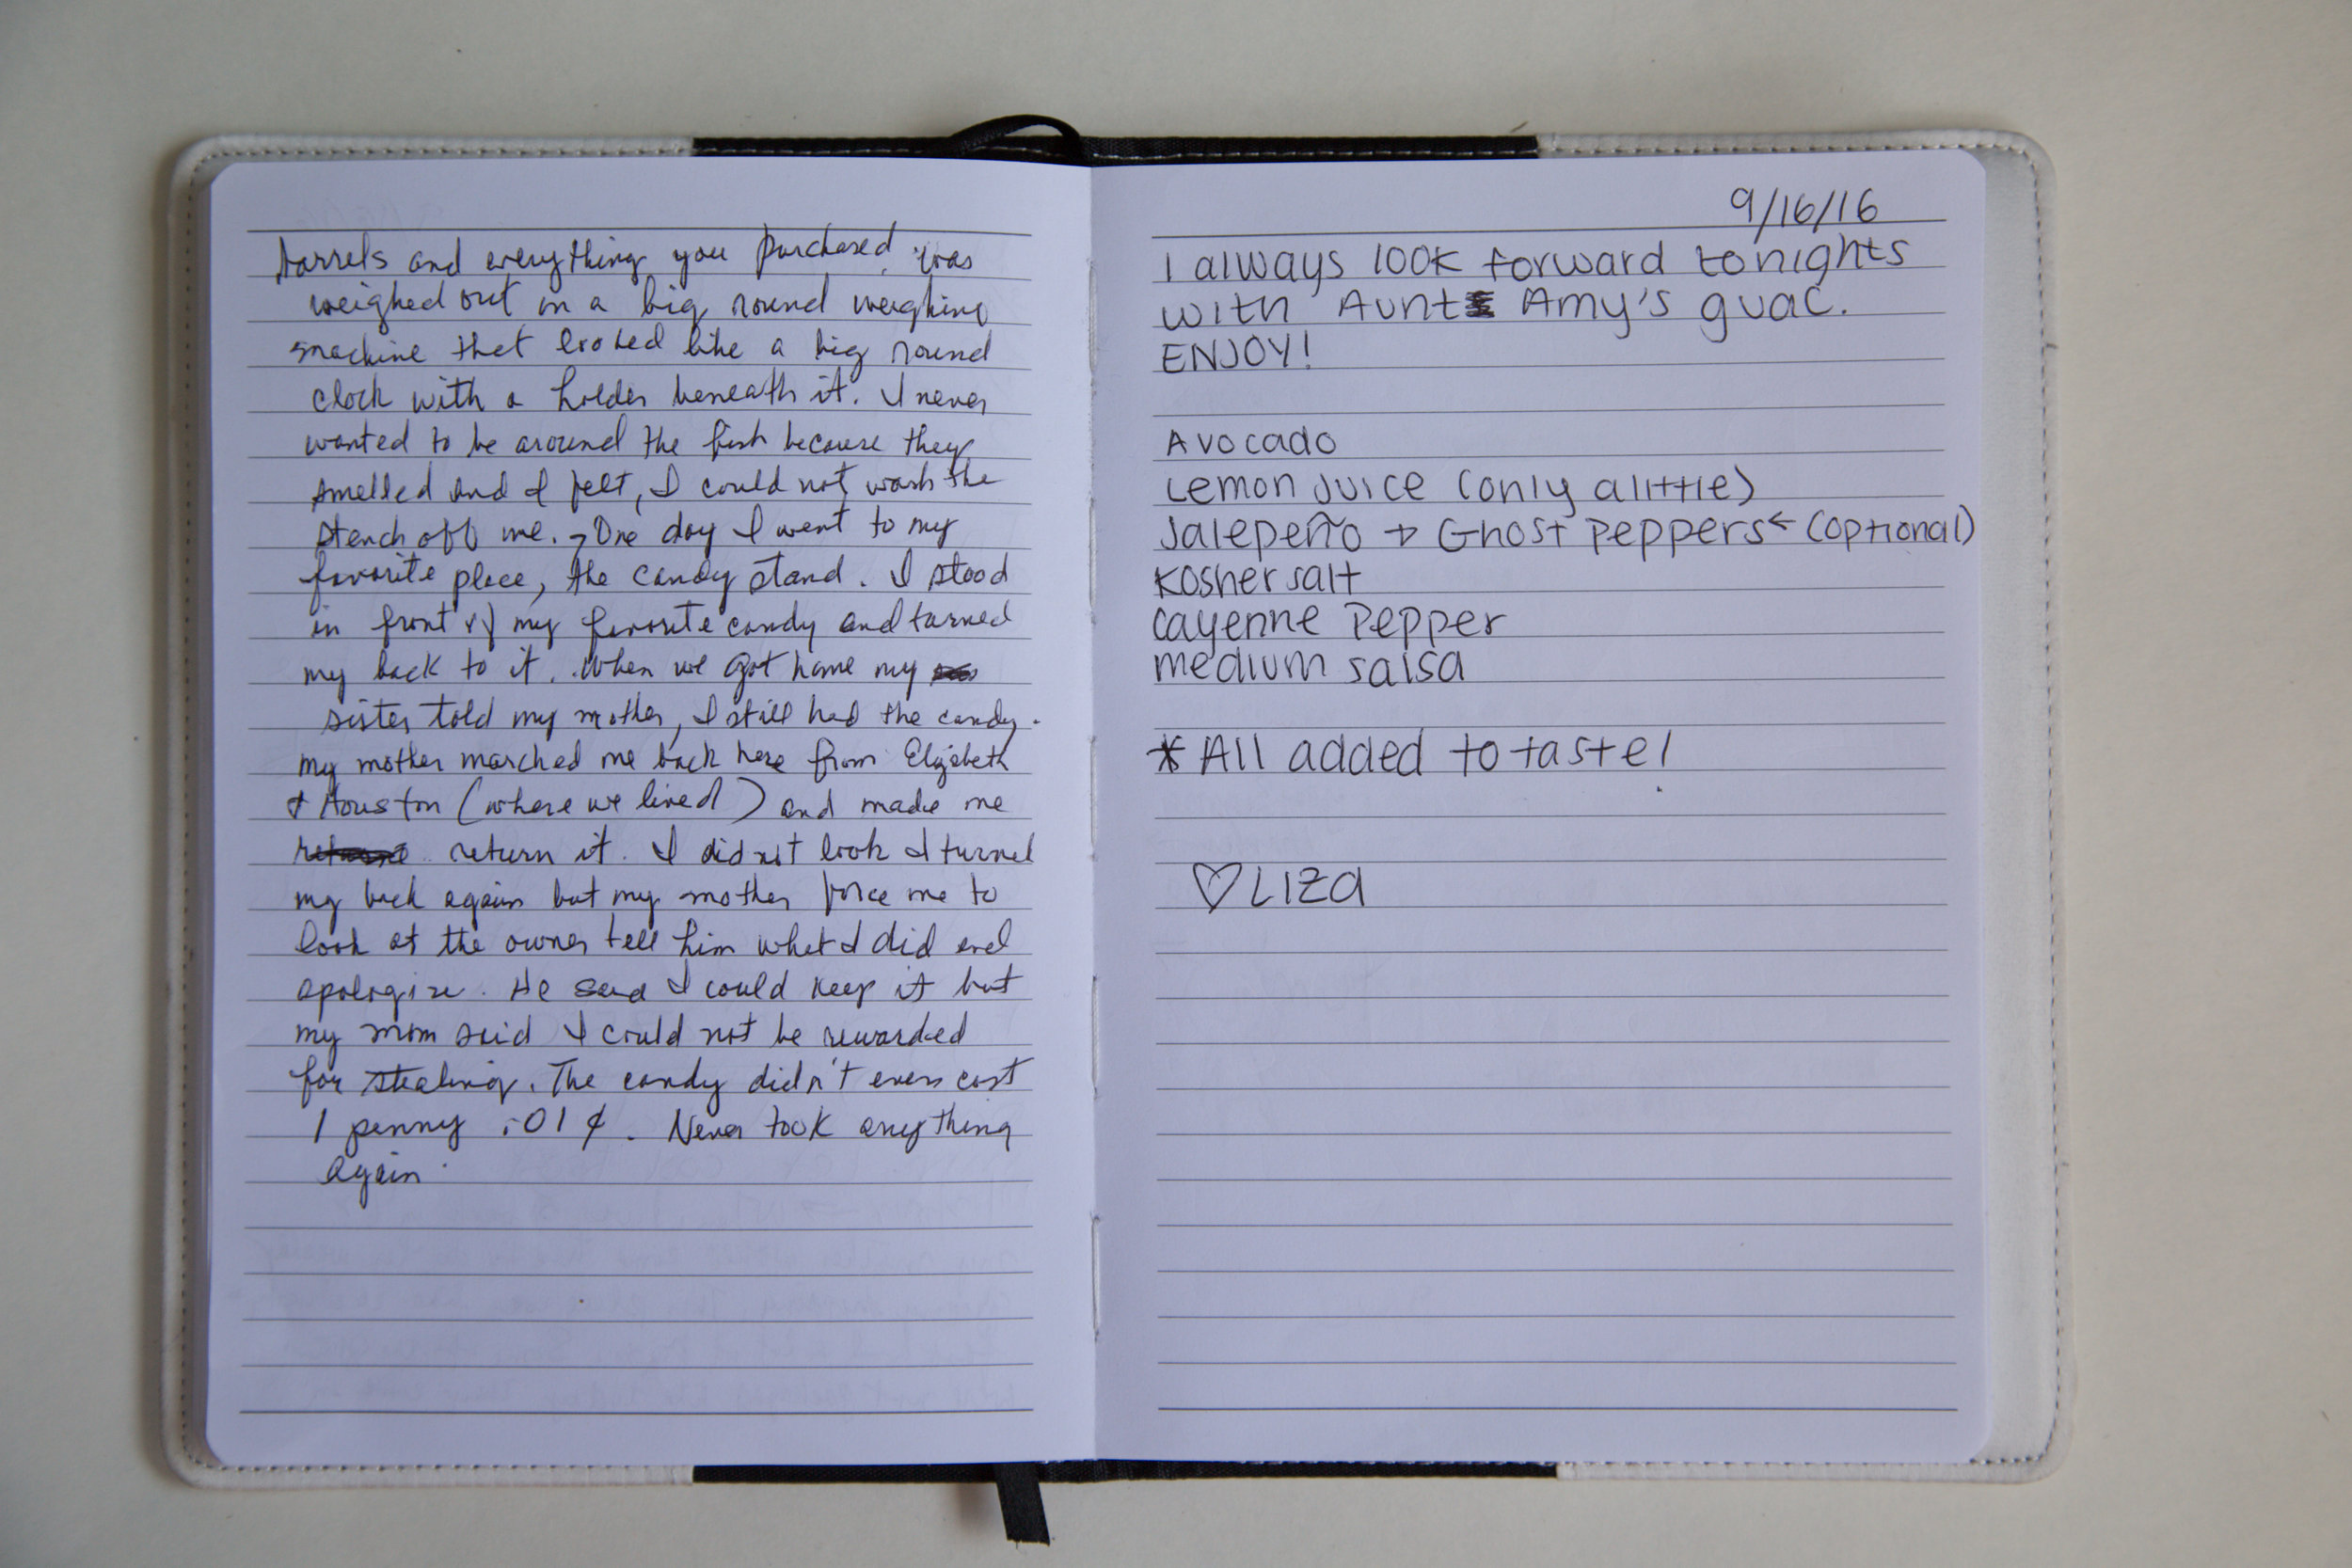 barrels and everything you purchased was
weighed out in a big round weighing
machine that looked like a big round
clock with a holder beneath it. I never
wanted to be around the fish because they
smelled and I felt, I could not wash the
stench off me. One day I went to my
favorite place, the candy stand. I stood
in front of my favorite candy and turned
my back to it. When we got home my
sister told my mother, I still had the candy.
my mother marched me back here from Elizabeth
& Houston (where we lived) and made me
return it. I did not look I turned
my back again but my mother force me to
look at the owner tell him what I did and
apologize. He said I could keep it but
my mom said I could not be rewarded
for stealing. The candy didn't even cost
1 penny .01 ¢. Never took anything
again.
9/16/16
I always look forward to nights
with Aunt Amy's guac.
ENJOY!
Avocado
Lemon Juice (only a little)
Jalepeño → Ghost Peppers ← (optional)
Kosher salt
Cayenne Pepper
medium salsa
* All added to taste!
♡ Liza